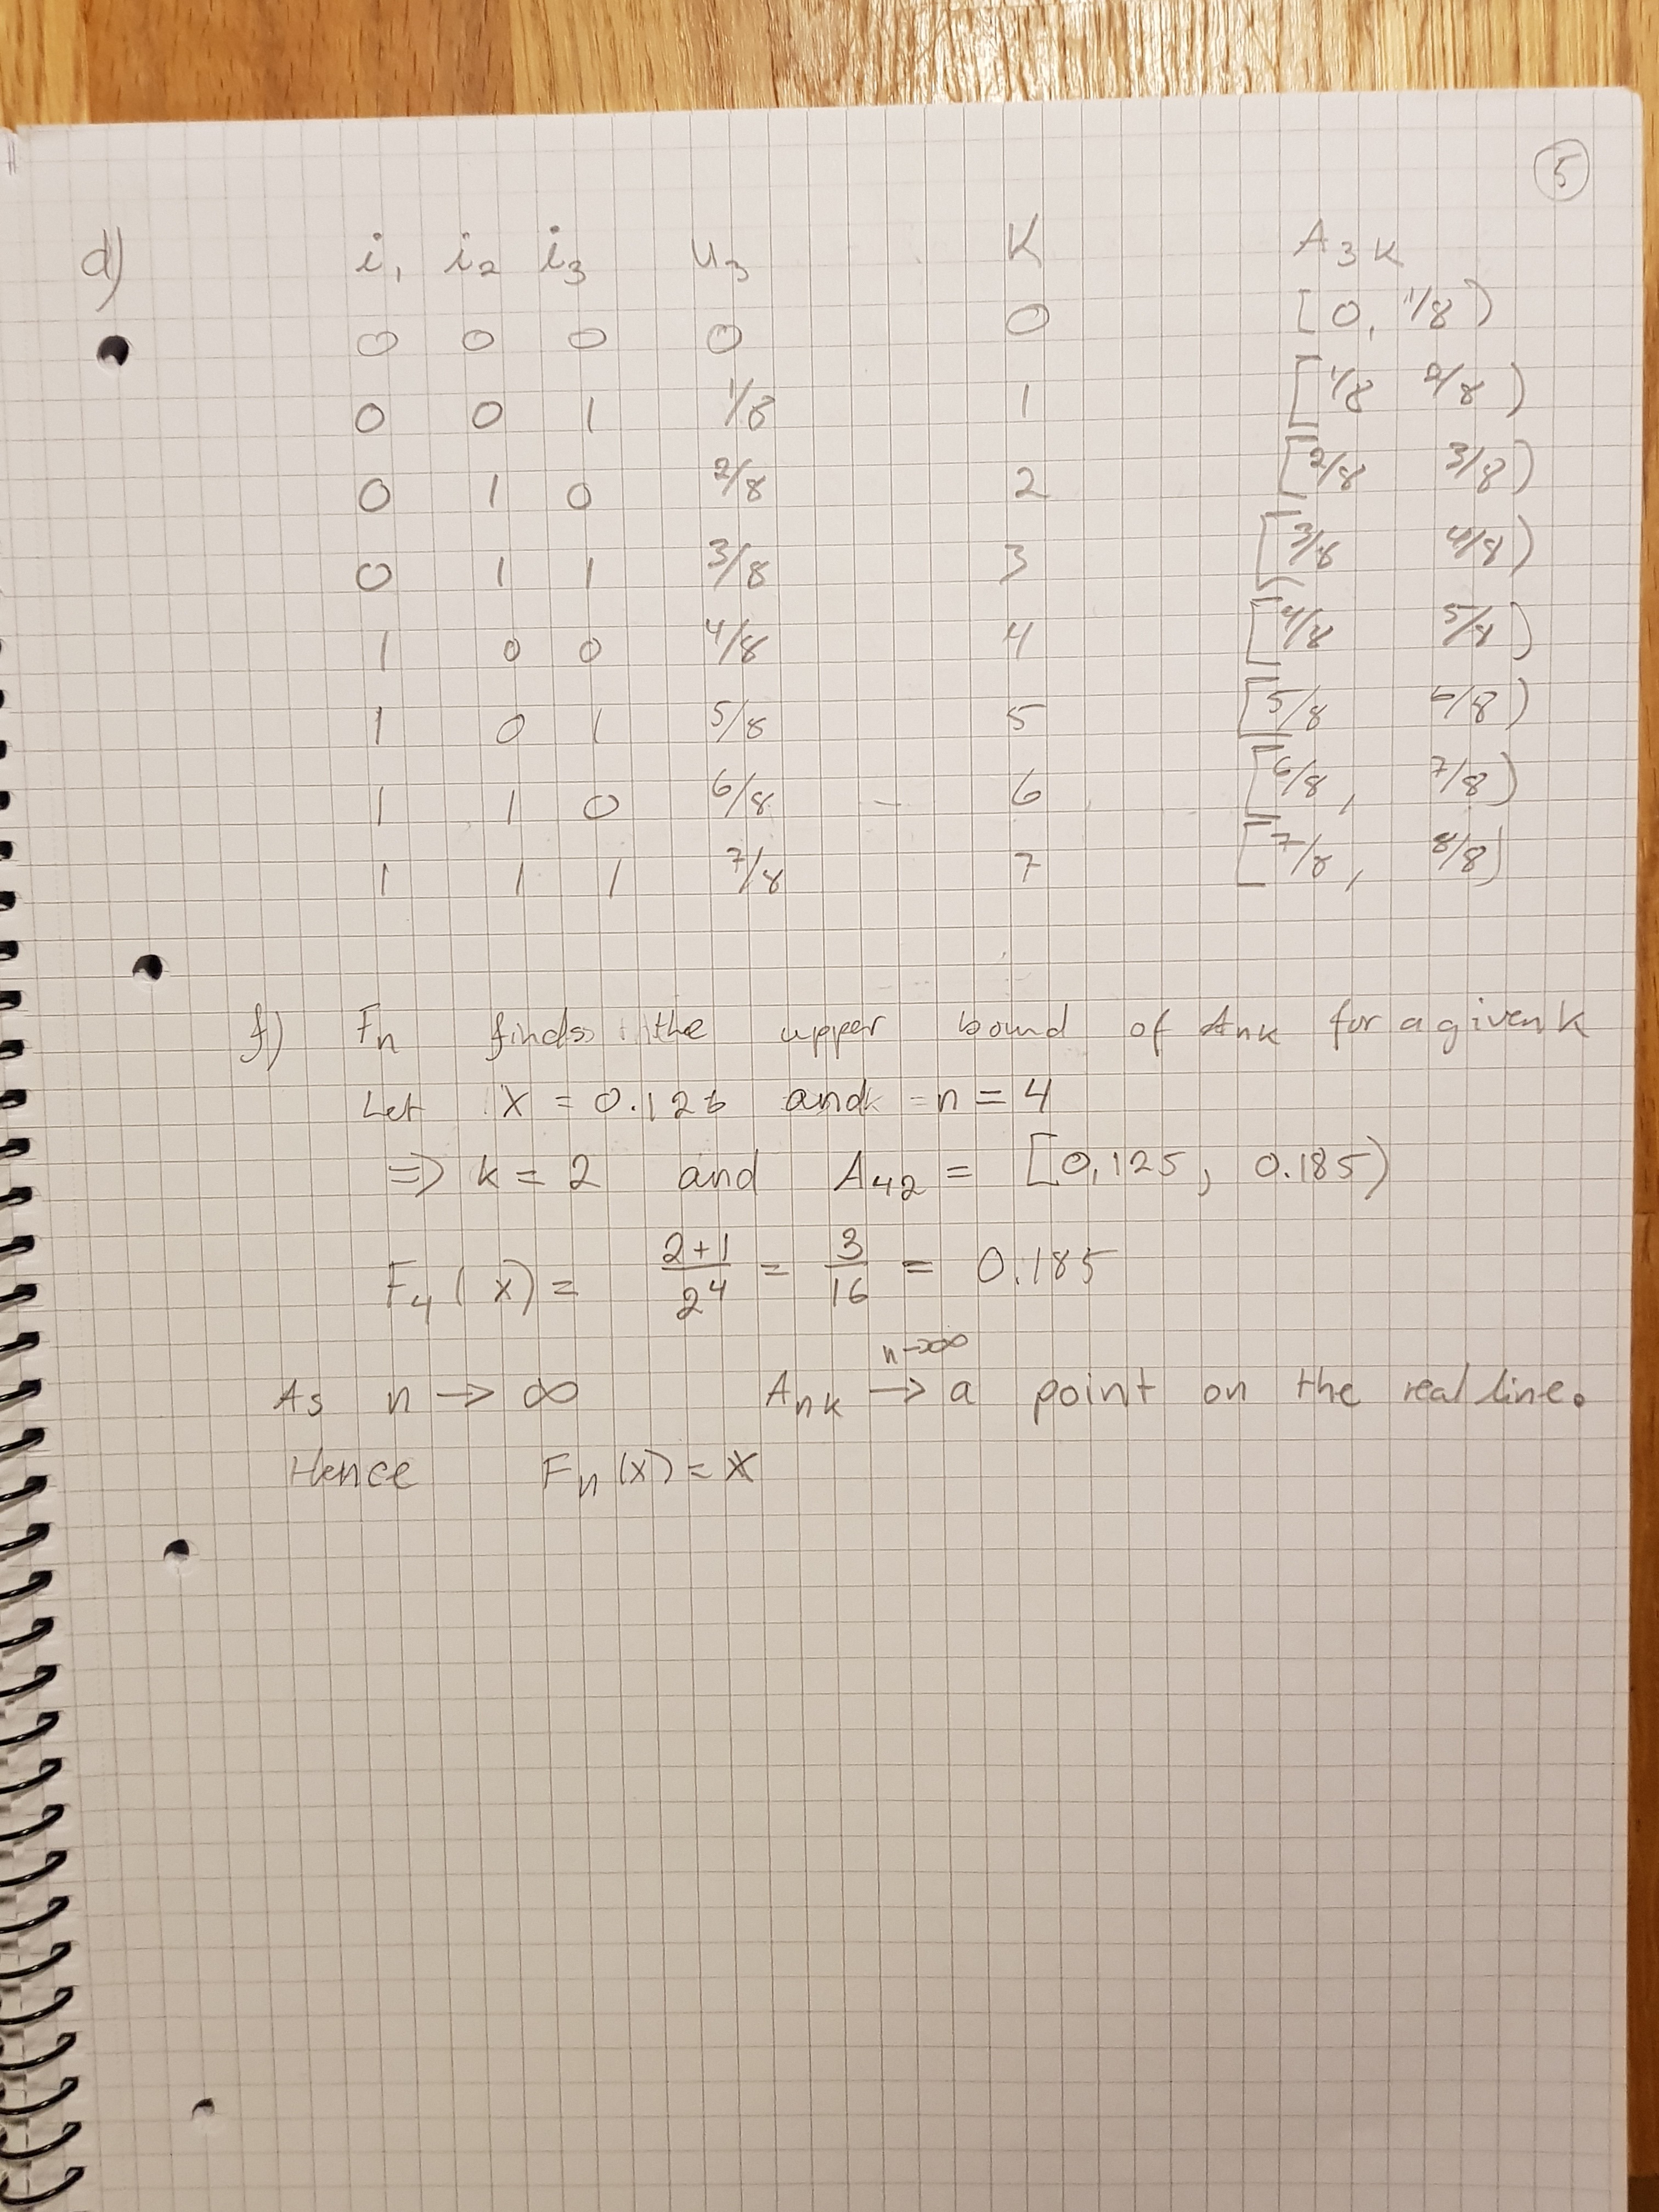 5
d) i₁ i₂ i₃ u₃ K A₃K
0 0 0 0 0 [0, 1/8)
0 0 1 1/8 1 [1/8 2/8)
0 1 0 2/8 2 [2/8 3/8)
0 1 1 3/8 3 [3/8 4/8)
1 0 0 4/8 4 [4/8 5/8)
1 0 1 5/8 5 [5/8 6/8)
1 1 0 6/8 - 6 [6/8, 7/8)
1 1 1 7/8 7 [7/8, 8/8)
f) Fn finds the upper bound of Ank for a given k
Let x = 0.126 and n = 4
=> k = 2 and A₄₂ = [0,125, 0.185)
F₄(x) = (2+1)/2⁴ = 3/16 = 0.185
As n → ∞ Ank →(n→∞) a point on the real line.
Hence Fn(x) = x